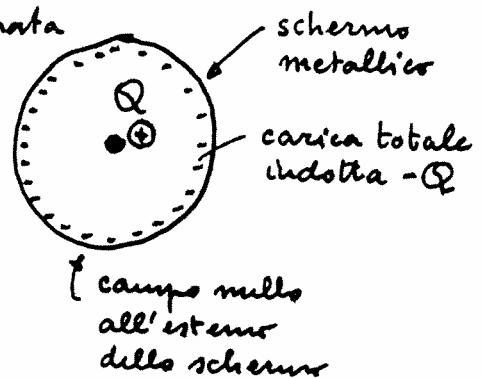 schermo
metallico
Q
+
carica totale
indotta - Q
campo nullo
all'esterno
dello schermo